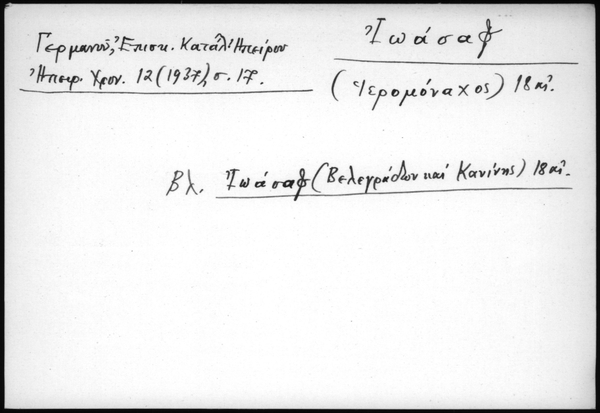 Γερμανοῦ, Ἐπισκ. Κατάλ. Ἠπείρου
Ἠπειρ. Χρον. 12 (1937), σ. 17.
Ἰωάσαφ
(Ἱερομόναχος) 18 αἰ.
Βλ. Ἰωάσαφ (Βελεγράδων καὶ Κανίνης) 18 αἰ.